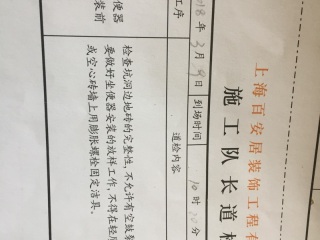 上海百安居装饰工程有
施工队长道检
2018年3月9日 到场时间 10时
工序
道检内容
便器
装前
检查坑洞边地砖的完整性,不允许有空鼓
要做好坐便器安装的放样工作,不得在轻
或空心砖墙上用膨胀螺栓固定洁具。